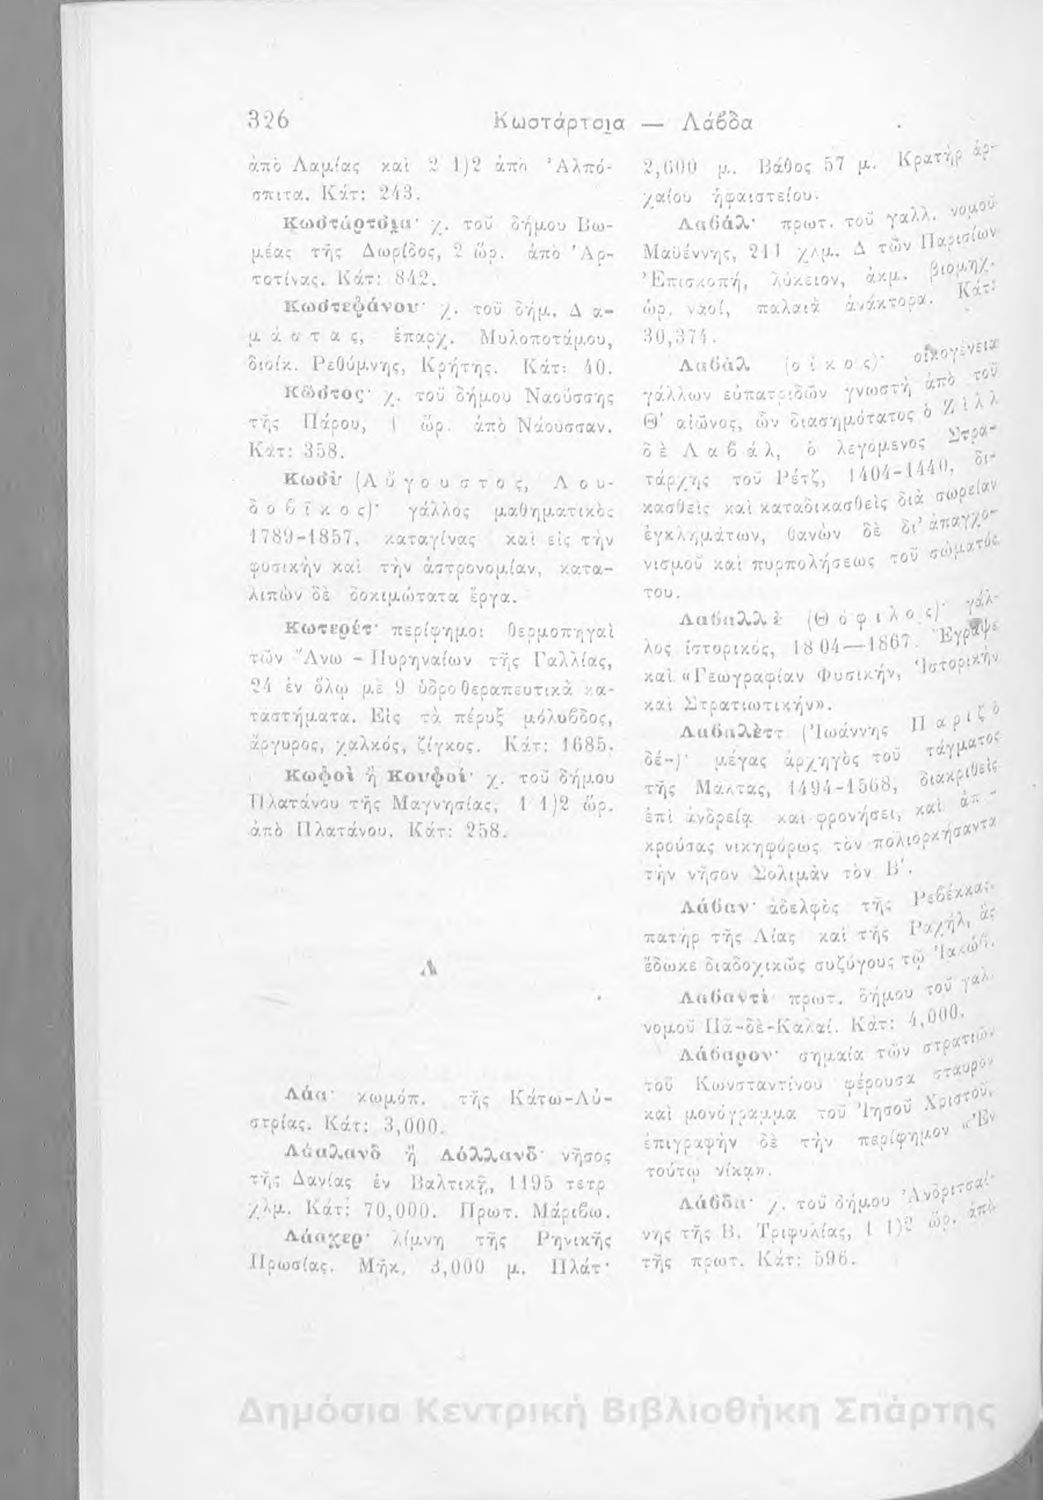 326
Κωστάρτσια — Λάβδα
ἀπὸ Λαμίας καὶ 2 1)2 ἀπὸ Ἀλπό-
σπιτα. Κάτ: 243.
Κωστάρτσια· χ. τοῦ δήμου Βω-
μέας τῆς Δωρίδος, 2 ὥρ. ἀπὸ Ἀρ-
τοτίνας. Κάτ: 842.
Κωστεφάνου· χ. τοῦ δήμ. Δ α-
μ ά σ τ α ς, ἐπαρχ. Μυλοποτάμου,
διοίκ. Ρεθύμνης, Κρήτης. Κάτ: 40.
Κῶστος· χ. τοῦ δήμου Ναούσσης
τῆς Πάρου, 1 ὥρ. ἀπὸ Νάουσσαν.
Κάτ: 358.
Κωσὺ (Α ὔ γ ο υ σ τ ο ς, Λ ο υ-
δ ο β ῖ κ ο ς)· γάλλος μαθηματικὸς
1789-1857, καταγίνας καὶ εἰς τὴν
φυσικὴν καὶ τὴν ἀστρονομίαν, κατα-
λιπὼν δὲ δοκιμώτατα ἔργα.
Κωτερέτ· περίφημοι θερμοπηγαὶ
τῶν Ἄνω - Πυρηναίων τῆς Γαλλίας,
24 ἐν ὅλῳ μὲ 9 ὑδροθεραπευτικὰ κα-
ταστήματα. Εἰς τὰ πέριξ μόλυβδος,
ἄργυρος, χαλκός, ζίγκος. Κάτ: 1685.
Κωφοὶ ἢ Κουφοί· χ. τοῦ δήμου
Πλατάνου τῆς Μαγνησίας, 1 1)2 ὥρ.
ἀπὸ Πλατάνου. Κάτ: 258.
Λ
Λάα· κωμόπ. τῆς Κάτω-Αὐ-
στρίας. Κάτ: 3,000.
Λάαλανδ ἢ Λόλλανδ· νῆσος
τῆς Δανίας ἐν Βαλτικῇ, 1195 τετρ
χλμ. Κάτ: 70,000. Πρωτ. Μάριβω.
Λάαχερ· λίμνη τῆς Ρηνικῆς
Πρωσίας. Μῆκ. 3,000 μ. Πλάτ·
2,600 μ. Βάθος 57 μ. Κρατὴρ ἀρ-
χαίου ἡφαιστείου.
Λαβάλ· πρωτ. τοῦ γαλλ. νομοῦ
Μαϋέννης, 211 χλμ. Δ τῶν Παρισίων
Ἐπισκοπή, λύκειον, ἀκμ. βιομηχ.
ὡρ. ναοί, παλαιὰ ἀνάκτορα. Κάτ:
30,374.
Λαβὰλ (ο ἶ κ ο ς)· οἰκογένεια
γάλλων εὐπατριδῶν γνωστὴ ἀπὸ τοῦ
Θ′ αἰῶνος, ὧν διασημότατος ὁ Ζ ὶ λ λ
δ ὲ Λ α β ά λ, ὁ λεγόμενος Στρα-
τάρχης τοῦ Ρέτζ, 1404-1440, δι-
κασθεὶς καὶ καταδικασθεὶς διὰ σωρείαν
ἐγκλημάτων, θανὼν δὲ δι' ἀπαγχο-
νισμοῦ καὶ πυρπολήσεως τοῦ σώματός
του.
Λαβαλλὲ (Θ ό φ ι λ ο ς)· γάλ-
λος ἱστορικός, 1804—1867. Ἔγραψε
καὶ «Γεωγραφίαν Φυσικήν, Ἱστορικὴν
καὶ Στρατιωτικήν».
Λαβαλὲττ (Ἰωάννης Π α ρ ι ζ ὸ
δέ-)· μέγας ἀρχηγὸς τοῦ τάγματος
τῆς Μάλτας, 1494-1568, διακριθεὶς
ἐπὶ ἀνδρείᾳ καὶ φρονήσει, καὶ ἀπ-
κρούσας νικηφόρως τὸν πολιορκήσαντα
τὴν νῆσον Σολιμὰν τὸν Β′.
Λάβαν· ἀδελφὸς τῆς Ρεβέκκας,
πατὴρ τῆς Λίας καὶ τῆς Ραχήλ, ἃς
ἔδωκε διαδοχικῶς συζύγους τῷ Ἰακώβ.
Λαβαντὶ· πρωτ. δήμου τοῦ γαλ.
νομοῦ Πᾶ-δὲ-Καλαί. Κάτ: 4,000.
Λάβαρον· σημαία τῶν στρατιῶν
τοῦ Κωνσταντίνου φέρουσα σταυρὸν
καὶ μονόγραμμα τοῦ Ἰησοῦ Χριστοῦ,
ἐπιγραφὴν δὲ τὴν περίφημον «Ἐν
τούτῳ νίκα».
Λάβδα· χ. τοῦ δήμου Ἀνδριτσαί-
νης τῆς Β. Τριφυλίας, 1 1)2 ὥρ. ἀπὸ
τῆς πρωτ. Κάτ: 596.
Δημόσια Κεντρική Βιβλιοθήκη Σπάρτης